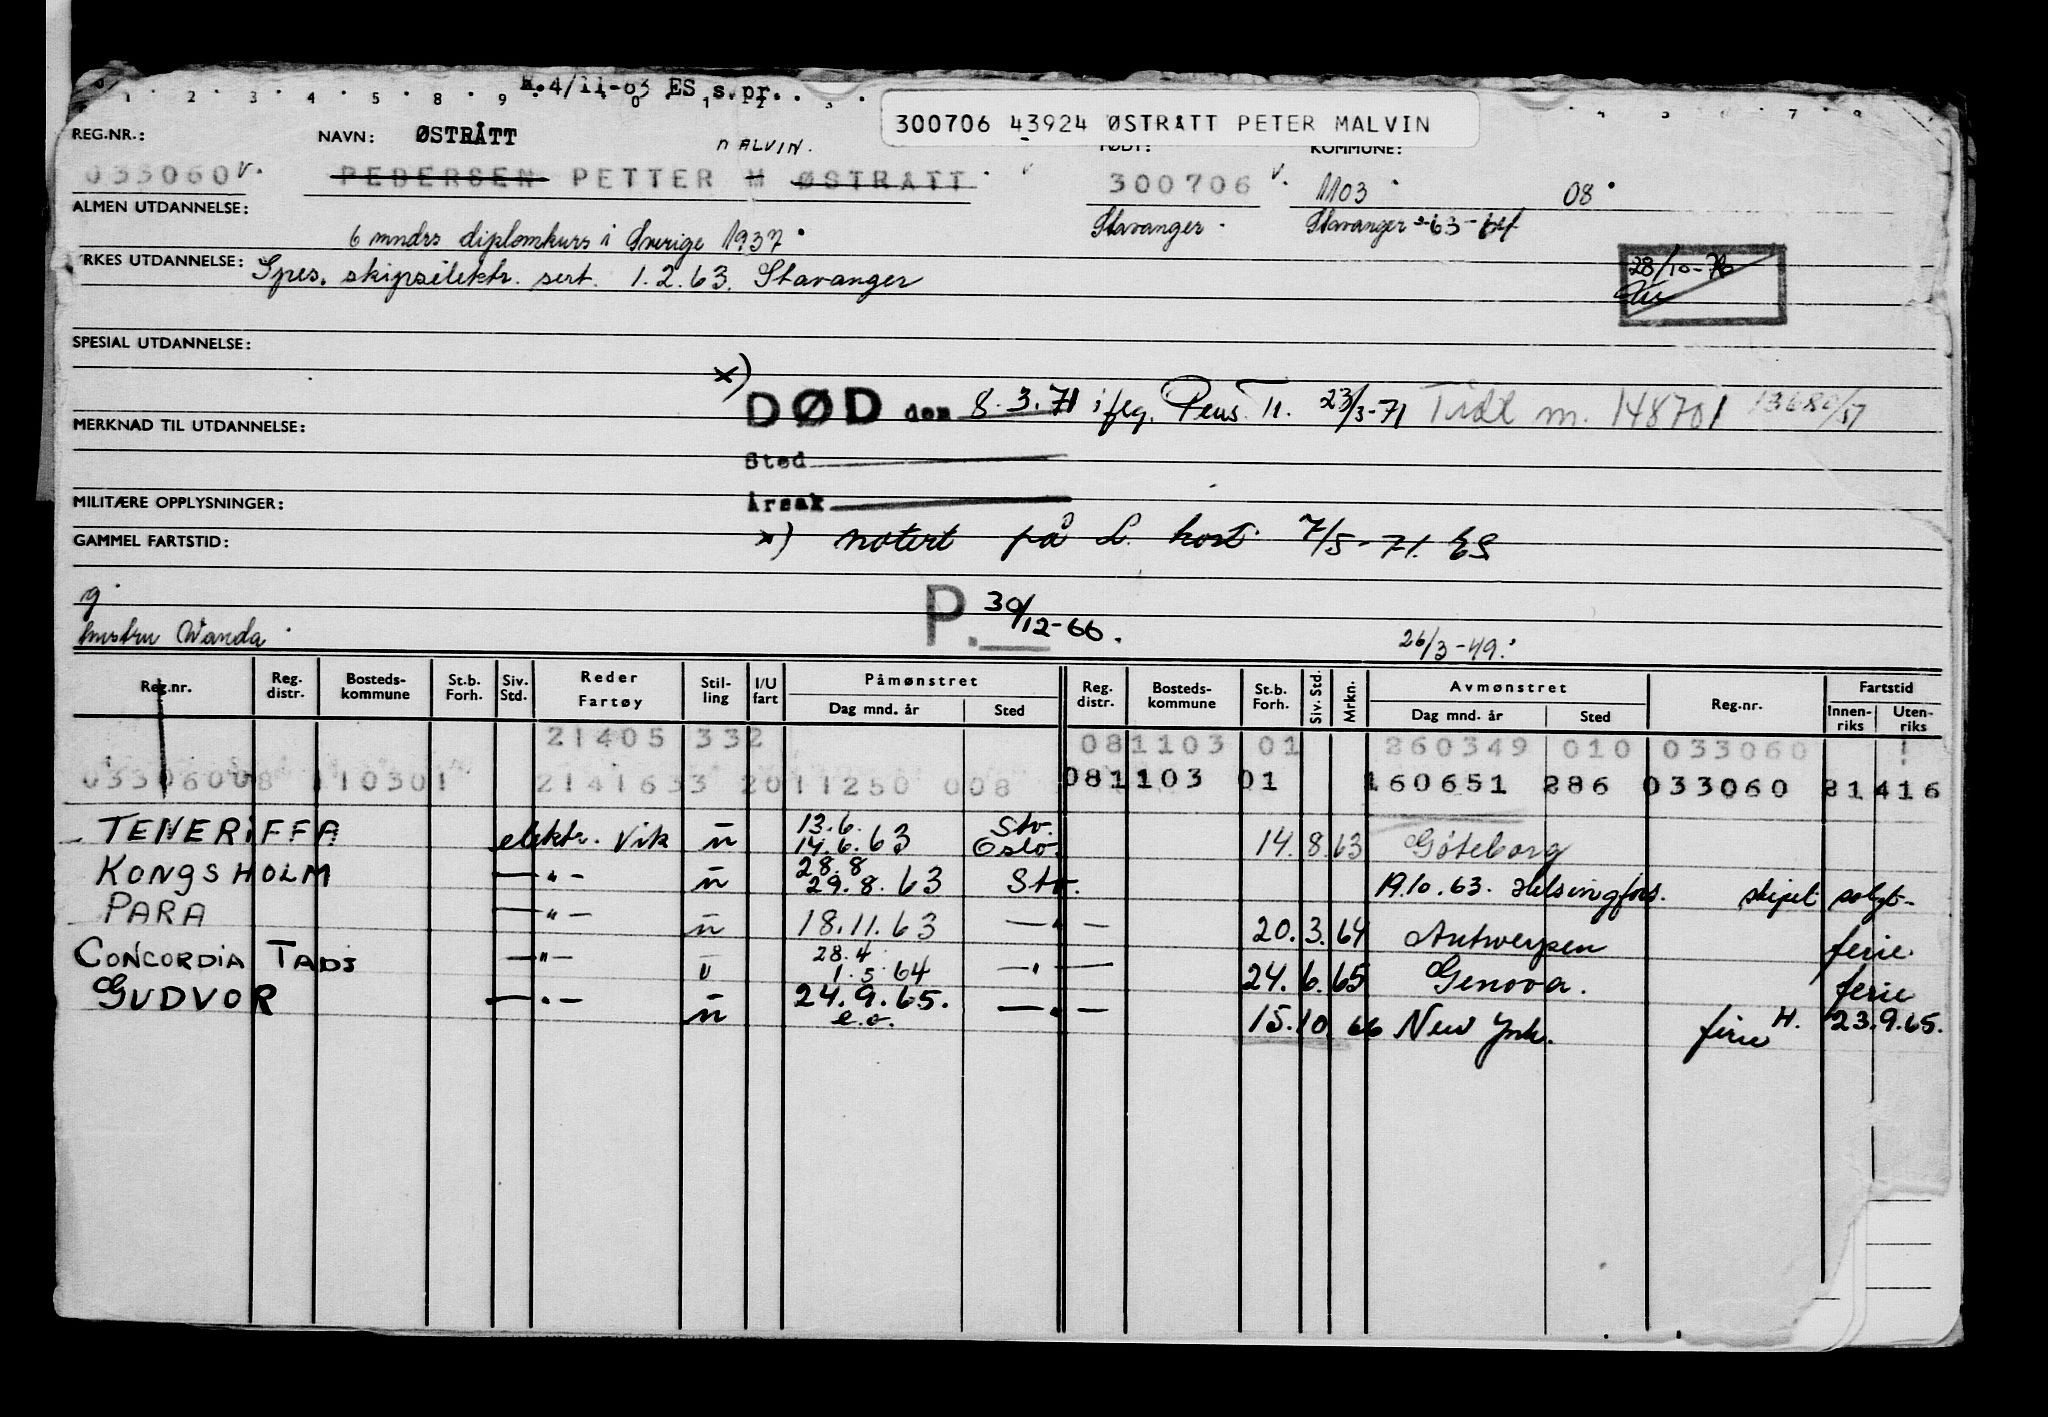 4/11-63 ES s.pr.
300706 43924 ØSTRÅTT PETER MALVIN
REG.NR.: NAVN: ØSTRÅTT MALVIN. FØDT: KOMMUNE:
033060 v. PEDERSEN PETTER M ØSTRÅTT 300706 v. 1103 08
ALMEN UTDANNELSE: 6 mndrs diplomkurs i Sverige 1937 Stavanger Stavanger -63-
YRKES UTDANNELSE: Spes. skipselektr. sert. 1.2.63. Stavanger
28/10-76
SPESIAL UTDANNELSE:
x)
DØD den 8.3.71 ifлg. Pens.Tr. 23/3-71 Tidl m. 148701 13680/57
MERKNAD TIL UTDANNELSE:
Sted
MILITÆRE OPPLYSNINGER: Årsak
GAMMEL FARTSTID: x) notert på L. kort 7/5-71. ES
g
hustru Wanda P. 30/12-66. 26/3-49.
Reg.nr. Reg. distr. Bosteds- kommune St.b. Forh. Siv. Std. Reder Fartøy Stil- ling I/U fart Påmønstret Dag mnd. år Sted Reg. distr. Bosteds- kommune St.b. Forh. Siv. Std. Mrkn. Avmønstret Dag mnd. år Sted Reg.nr. Fartstid Innen- riks Uten- riks
21405 332 081103 01 260349 010 033060 1
03306008 110301 2141633 2011250 008 081103 01 160651 286 033060 21416
TENERIFFA elektr. Vik u 13.6. 14.6.63 Stv. Oslo. 14.8.63 Göteborg
KONGSHOLM — " — u 28.8 29.8.63 Stv. 19.10.63. Helsingfors. skipet solgt-
PARA — " — u 18.11.63 — " — 20.3.64 Antwerpen ferie
CONCORDIA TADJ — " — u 28.4 1.5.64 — " — 24.6.65 Genova. ferie
GUDVOR — " — u 24.9.65. e.o. — " — 15.10.66 New York. ferie H. 23.9.65.